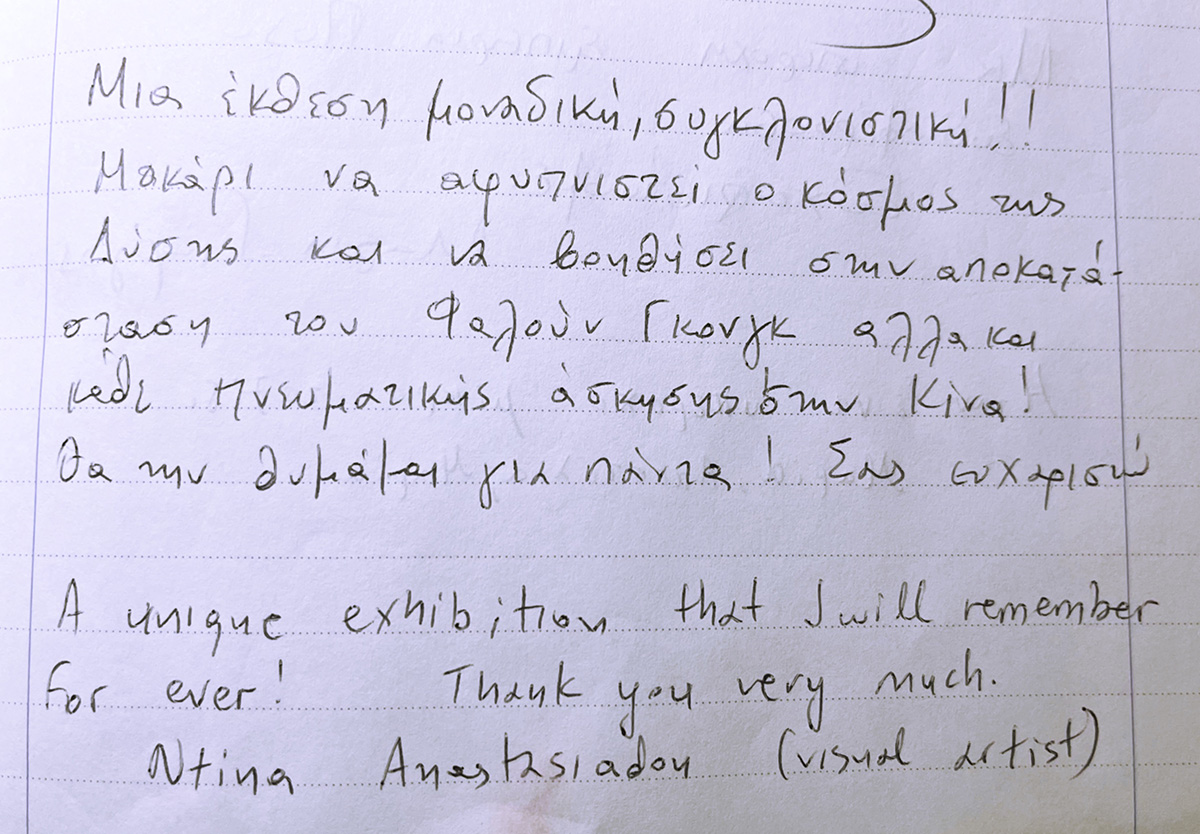 Μια έκθεση μοναδική, συγκλονιστική!!
Μακάρι να αφυπνιστεί ο κόσμος της
Δύσης και να βοηθήσει στην αποκατά-
σταση του Φαλούν Γκονγκ αλλα και
κάθε πνευματικής άσκησης στην Κίνα!
Θα την θυμάμαι για πάντα! Σας ευχαριστώ
A unique exhibition that I will remember
For ever! Thank you very much.
Ntina Anastasiadou (visual artist)